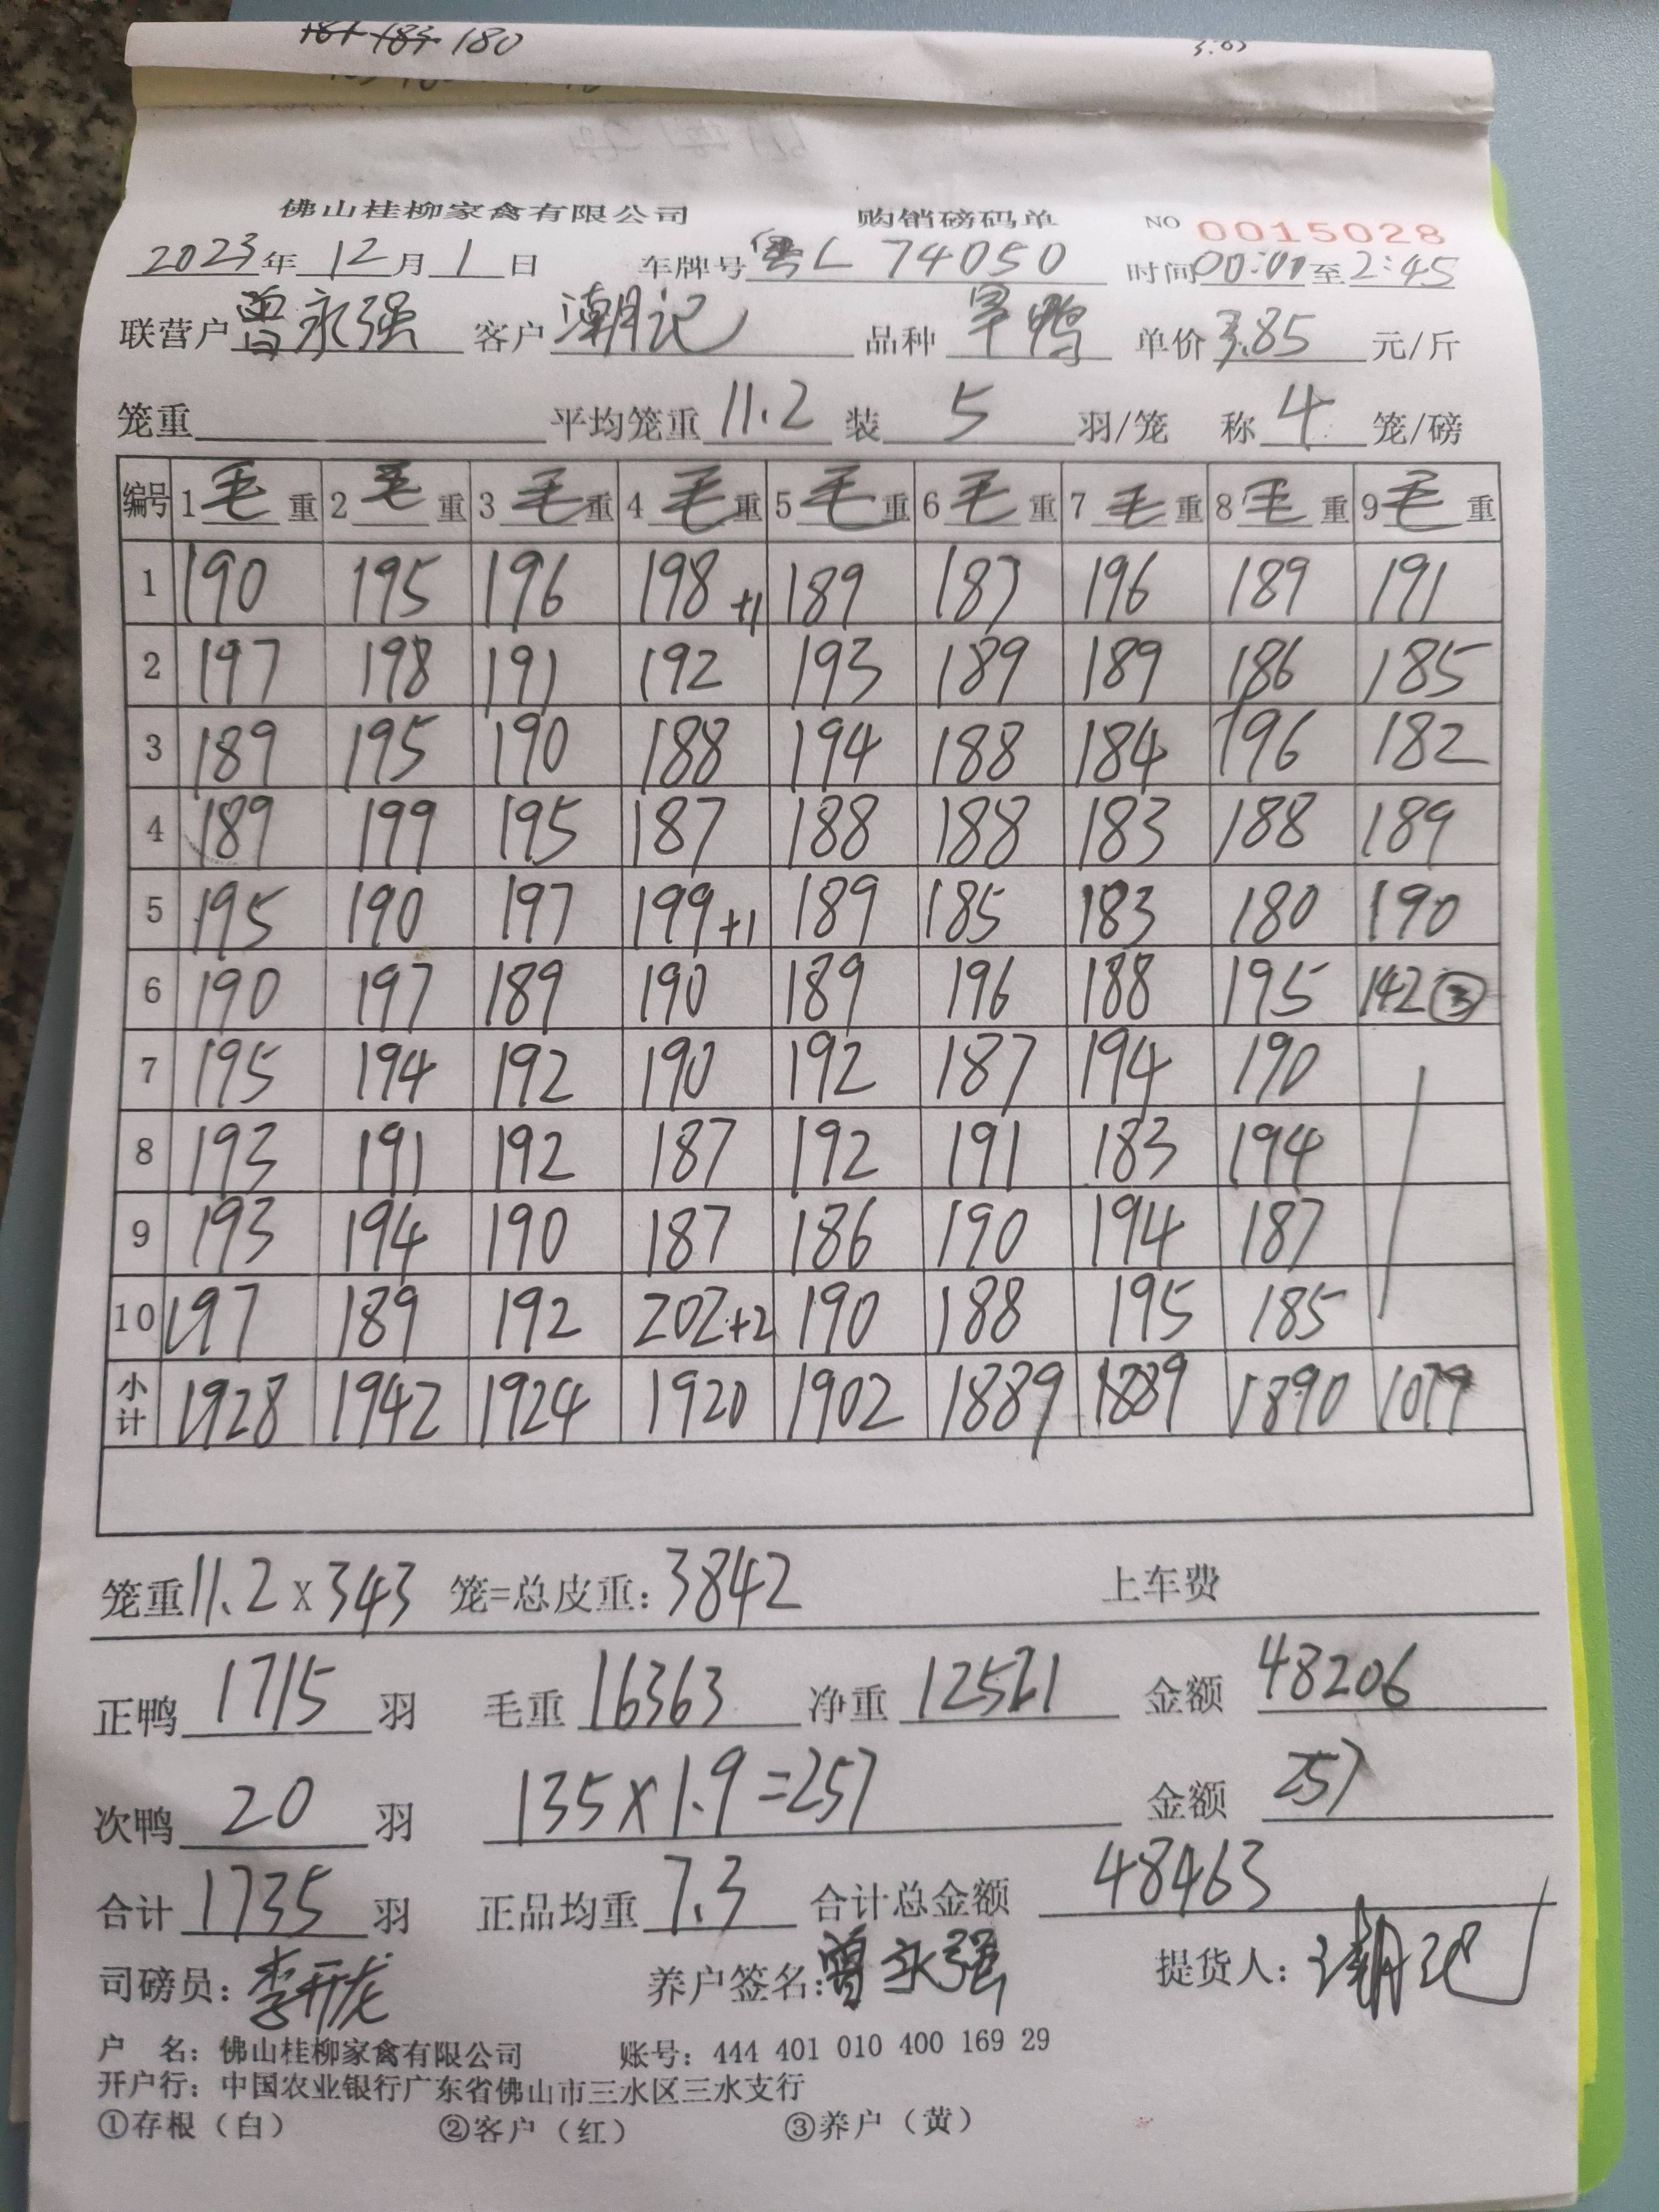 180
佛山桂柳家禽有限公司 购销磅码单 NO 0015028
2023年12月1日 车牌号粤L 74050 时间00:01至2:45
联营户曾永强 客户潮记 品种旱鸭 单价3.85元/斤
笼重 平均笼重11.2 装5羽/笼 称4笼/磅
编号 1毛重 2毛重 3毛重 4毛重 5毛重 6毛重 7毛重 8毛重 9毛重
1 190 195 196 198+1 189 187 196 189 191
2 197 198 191 192 193 189 189 186 185
3 189 195 190 188 194 188 184 196 182
4 189 199 195 187 188 188 183 188 189
5 195 190 197 199+1 189 185 183 180 190
6 190 197 189 190 189 196 188 195 142③
7 195 194 192 190 192 187 194 190
8 193 191 192 187 192 191 183 194
9 193 194 190 187 186 190 194 187
10 197 189 192 202+2 190 188 195 185
小计 1928 1942 1924 1920 1902 1889 1889 1890 1079
笼重11.2×343笼=总皮重:3842 上车费
正鸭1715羽 毛重16363 净重12521 金额48206
次鸭20羽 135×1.9=257 金额257
合计1735羽 正品均重7.3 合计总金额48463
司磅员:李开龙 养户签名:曾永强 提货人:潮记
户 名:佛山桂柳家禽有限公司 账号:444 401 010 400 169 29
开户行:中国农业银行广东省佛山市三水区三水支行
①存根(白) ②客户(红) ③养户(黄)